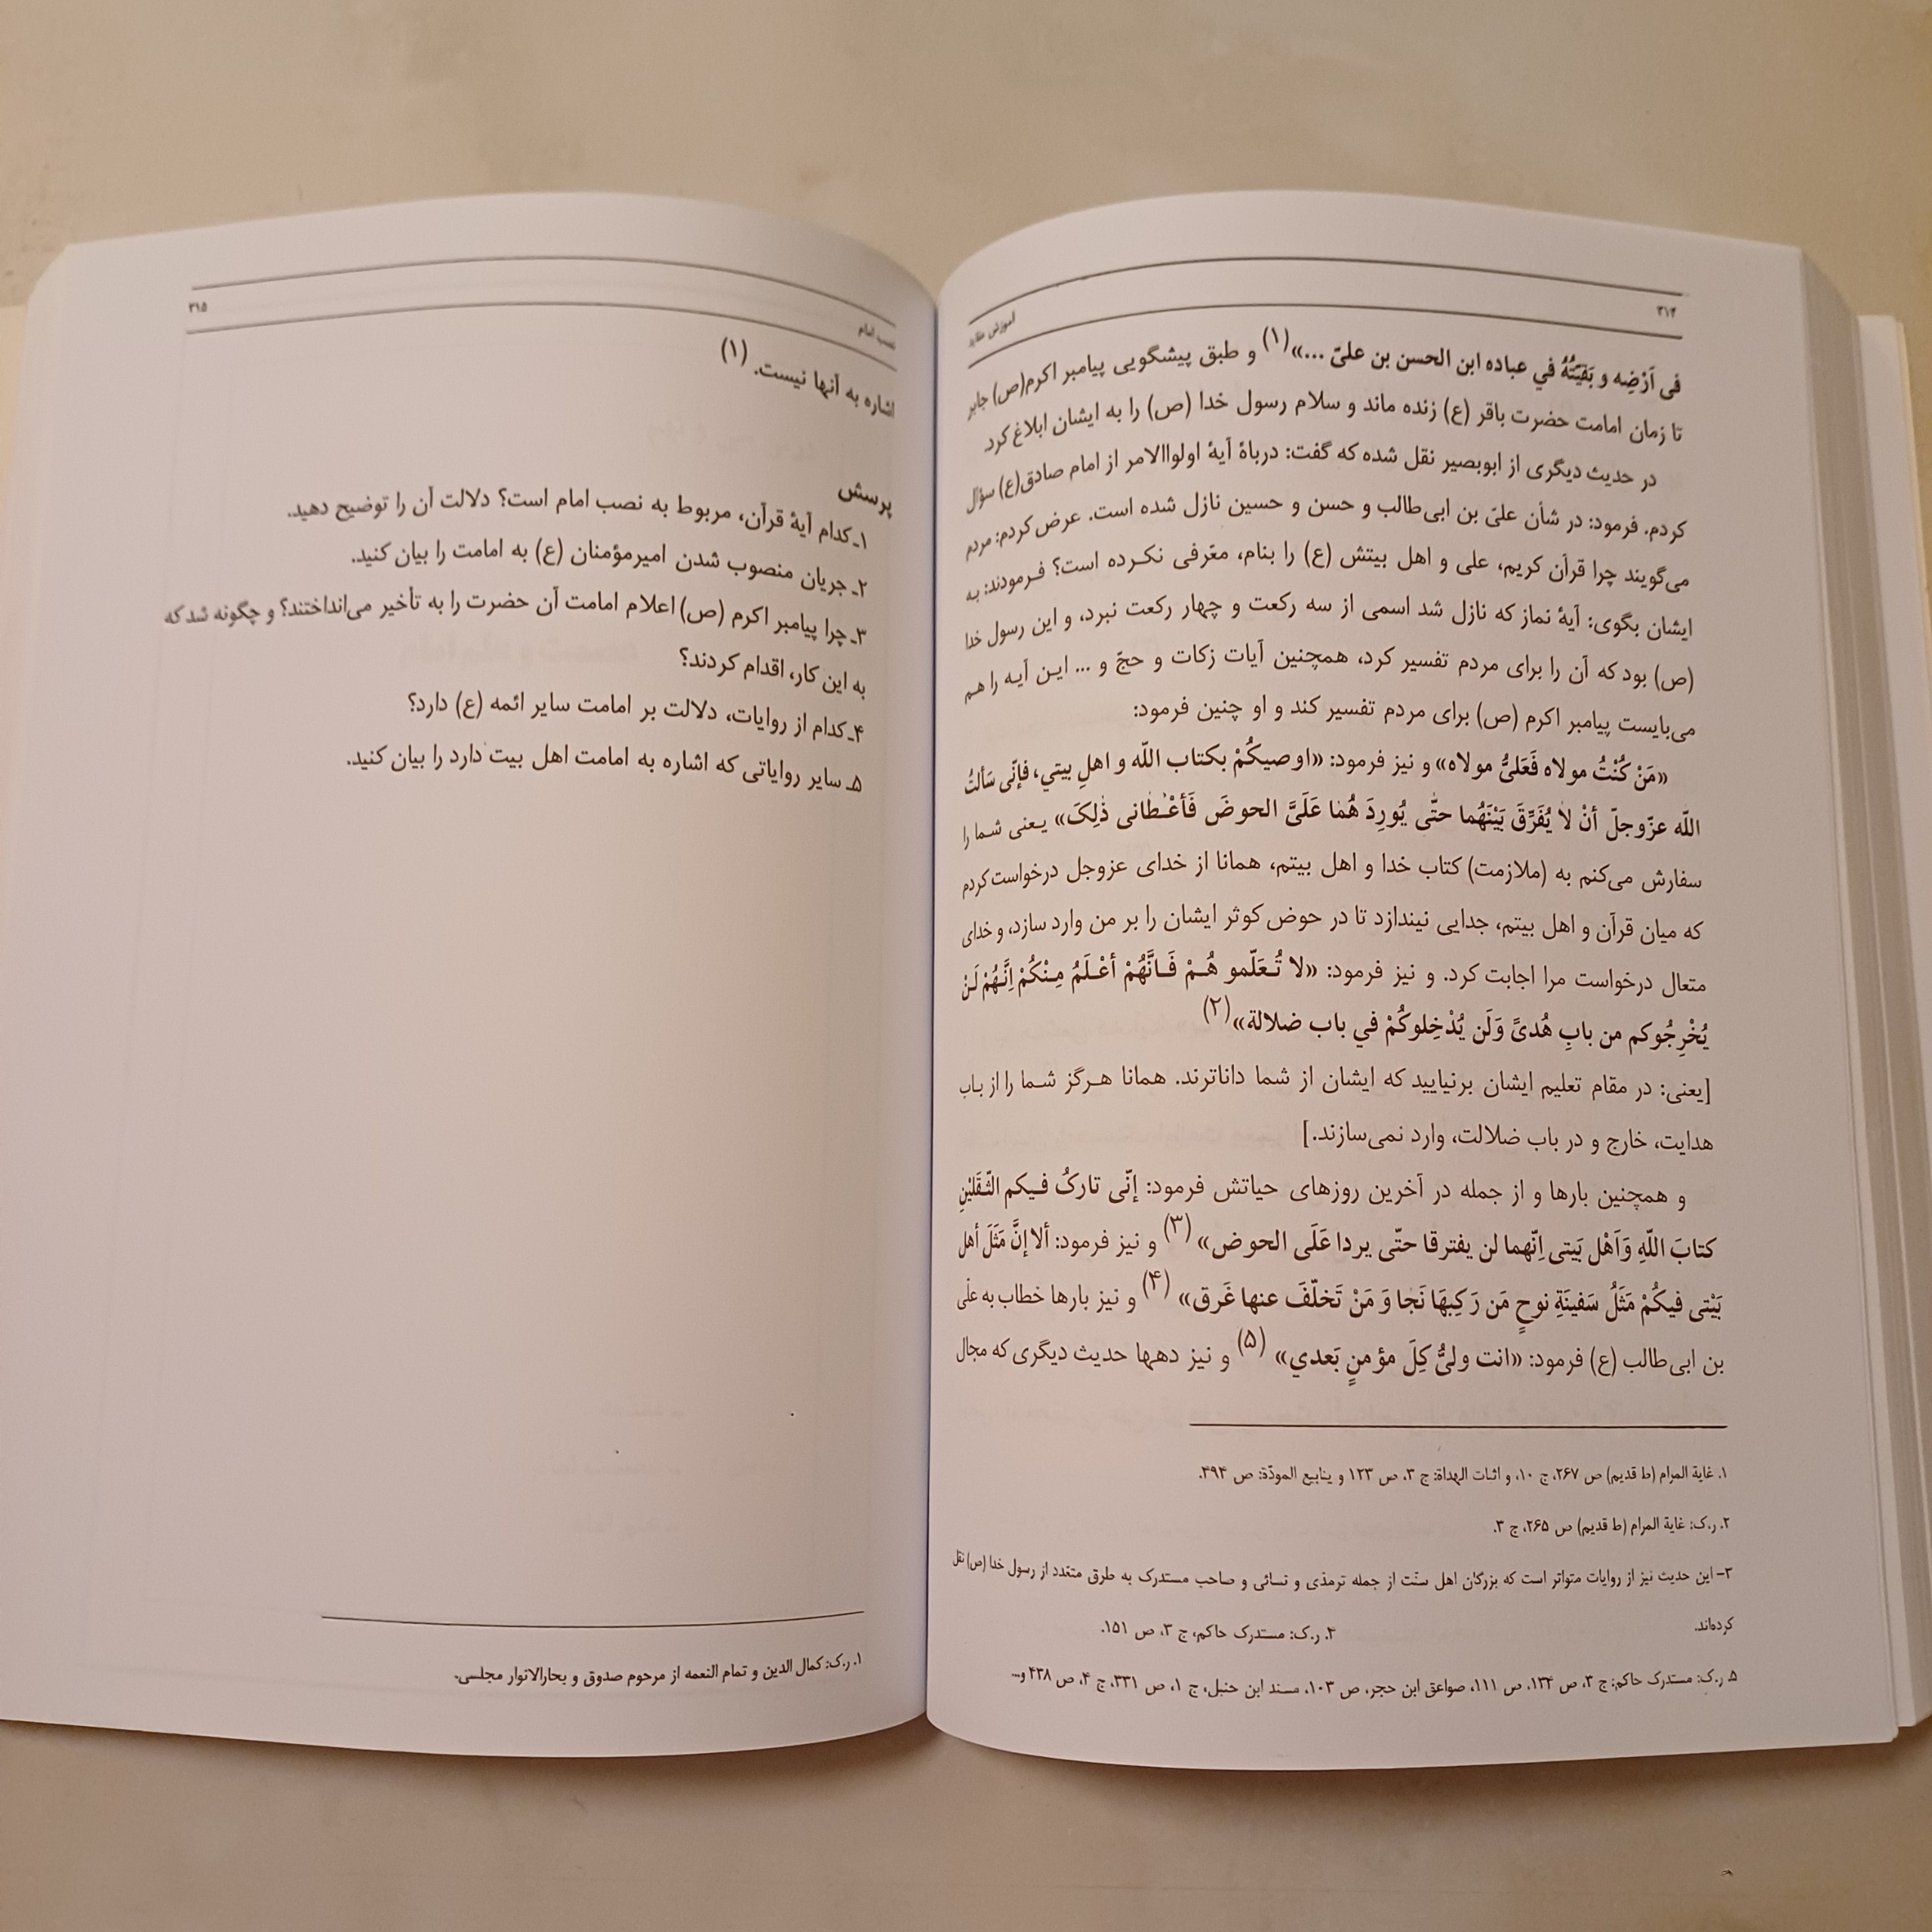 ۳۱۴
آموزش عقاید
فی اَرْضِه و بَقیَتُهُ في عباده ابن الحسن بن علیّ ...»(۱) و طبق پیشگویی پیامبر اکرم(ص) جابر
تا زمان امامت حضرت باقر (ع) زنده ماند و سلام رسول خدا (ص) را به ایشان ابلاغ کرد.
در حدیث دیگری از ابوبصیر نقل شده که گفت: درباهٔ آیهٔ اولواالامر از امام صادق(ع) سؤال
کردم. فرمود: در شأن علیّ بن ابی‌طالب و حسن و حسین نازل شده است. عرض کردم: مردم
می‌گویند چرا قرآن کریم، علی و اهل بیتش (ع) را بنام، معّرفی نکرده است؟ فرمودند: به
ایشان بگوی: آیهٔ نماز که نازل شد اسمی از سه رکعت و چهار رکعت نبرد، و این رسول خدا
(ص) بود که آن را برای مردم تفسیر کرد، همچنین آیات زکات و حجّ و ... این آیه را هم
می‌بایست پیامبر اکرم (ص) برای مردم تفسیر کند و او چنین فرمود:
«مَنْ كُنْتُ مولاه فَعَلیُّ مولاه» و نیز فرمود: «اوصیكُمْ بکتاب اللّه و اهلِ بیتي، فإنّی سَألتُ
اللّه عزّوجلّ أنْ لا یُفَرِّقَ بَیْنَهُما حتّی یُورِدَ هُما عَلَیَّ الحوضَ فَأعْطانی ذٰلِکَ» یعنی شما را
سفارش می‌کنم به (ملازمت) کتاب خدا و اهل بیتم، همانا از خدای عزوجل درخواست کردم
که میان قرآن و اهل بیتم، جدایی نیندازد تا در حوض کوثر ایشان را بر من وارد سازد، و خدای
متعال درخواست مرا اجابت کرد. و نیز فرمود: «لا تُعَلّمو هُمْ فَانَّهُمْ أعْلَمُ مِنْكُمْ اِنَّهُمْ لَنْ
یُخْرِجُوکم من بابِ هُدیً وَلَن یُدْخِلوكُمْ في باب ضلالة»(۲)
[یعنی: در مقام تعلیم ایشان برنیایید که ایشان از شما داناترند. همانا هرگز شما را از باب
هدایت، خارج و در باب ضلالت، وارد نمی‌سازند.]
و همچنین بارها و از جمله در آخرین روزهای حیاتش فرمود: إنّی تارکُ فیکم الثّقَلَیْنِ
کتابَ اللّهِ وَاَهْل بَیتی اِنّهما لن یفترقا حتّی یردا عَلَی الحوض» (۳) و نیز فرمود: ألا إنَّ مَثَلَ أهل
بَیْتی فیكُمْ مَثَلُ سَفینَةِ نوحٍ مَن رَكِبهَا نَجا وَ مَنْ تَخلّفَ عنها غَرق» (۴) و نیز بارها خطاب به علّی
بن ابی‌طالب (ع) فرمود: «انت ولیُّ كِلَ مؤمنٍ بَعدي» (۵) و نیز دهها حدیث دیگری که مجال
۱. غایة المرام (ط قدیم) ص ۲۶۷، ج ۱۰، و اثبات الهداة: ج ۳، ص ۱۲۳ و ینابیع المودّة: ص ۴۹۴.
۲. ر.ک: غایة المرام (ط قدیم) ص ۲۶۵، ج ۳.
۳- این حدیث نیز از روایات متواتر است که بزرگان اهل سنّت از جمله ترمذی و نسائی و صاحب مستدرک به طرق متعّدد از رسول خدا (ص) نقل
کرده‌اند.
۴. ر.ک: مستدرک حاکم، ج ۳، ص ۱۵۱.
۵. ر.ک: مستدرک حاکم: ج ۳، ص ۱۳۴، ص ۱۱۱، صواعق ابن حجر، ص ۱۰۳، مسند ابن حنبل، ج ۱، ص ۳۳۱، ج ۴، ص ۴۳۸ و...
نصب امام
۳۱۵
اشاره به آنها نیست. (۱)
پرسش
۱ـ کدام آیهٔ قرآن، مربوط به نصب امام است؟ دلالت آن را توضیح دهید.
۲ـ جریان منصوب شدن امیرمؤمنان (ع) به امامت را بیان کنید.
۳ـ چرا پیامبر اکرم (ص) اعلام امامت آن حضرت را به تأخیر می‌انداختند؟ و چگونه شد که
به این کار، اقدام کردند؟
۴ـ کدام از روایات، دلالت بر امامت سایر ائمه (ع) دارد؟
۵ـ سایر روایاتی که اشاره به امامت اهل بیت دارد را بیان کنید.
۱. ر.ک: کمال الدین و تمام النعمه از مرحوم صدوق و بحارالانوار مجلسی.